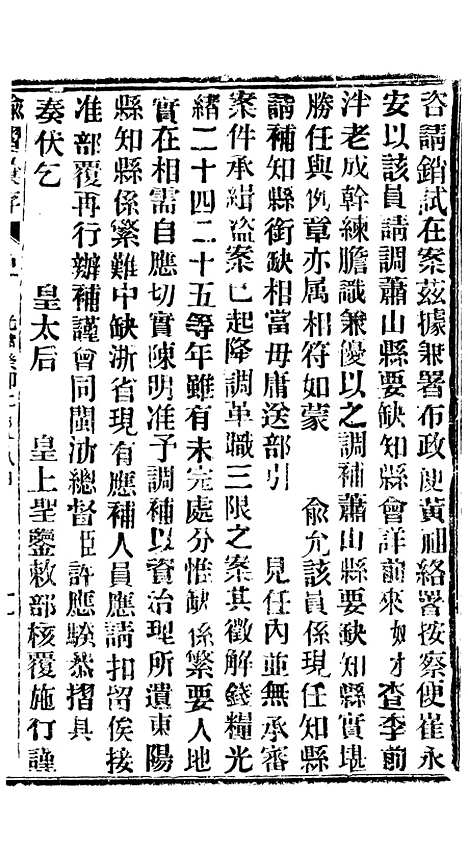 咨請銷試在案茲據兼署布政使黃祖絡署按察使崔永
安以該員請調蕭山縣要缺知縣會詳前來 查李前
泮老成幹練膽識兼優以之調補蕭山縣要缺知縣實堪
勝任與例章亦属相符如蒙 俞允該員係現任知縣
請補知縣銜缺相當毋庸送部引 見任內並無承審
案件承緝盜案已起降調革職三限之案其徵解錢糧光
緒二十四二十五等年雖有未完處分惟缺係繁要人地
實在相需自應切實陳明准予調補以資治理所遺東陽
縣知縣係繁難中缺浙省現有應補人員應請扣留俟接
准部覆再行辦補謹會同閩浙總督臣許應騤恭摺具
奏伏乞 皇太后 皇上聖鑒敕部核覆施行謹